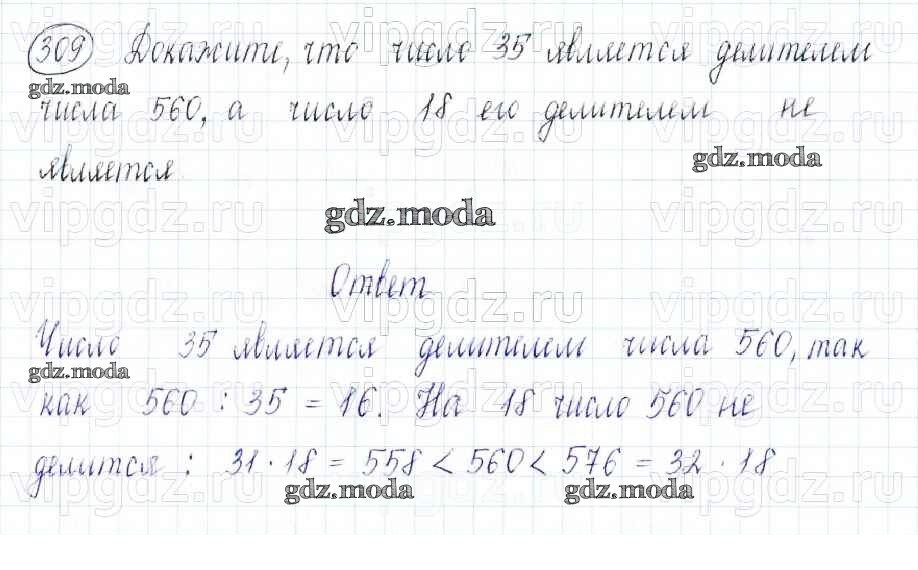 309 Докажите, что число 35 является делителем
gdz.moda
числа 560, а число 18 его делителем не
gdz.moda
является.
gdz.moda
Ответ
Число 35 является делителем числа 560, так
gdz.moda
как 560 : 35 = 16. На 18 число 560 не
делится: 31 · 18 = 558 < 560 < 576 = 32 · 18
gdz.moda gdz.moda
vipgdz.ru vipgdz.ru vipgdz.ru